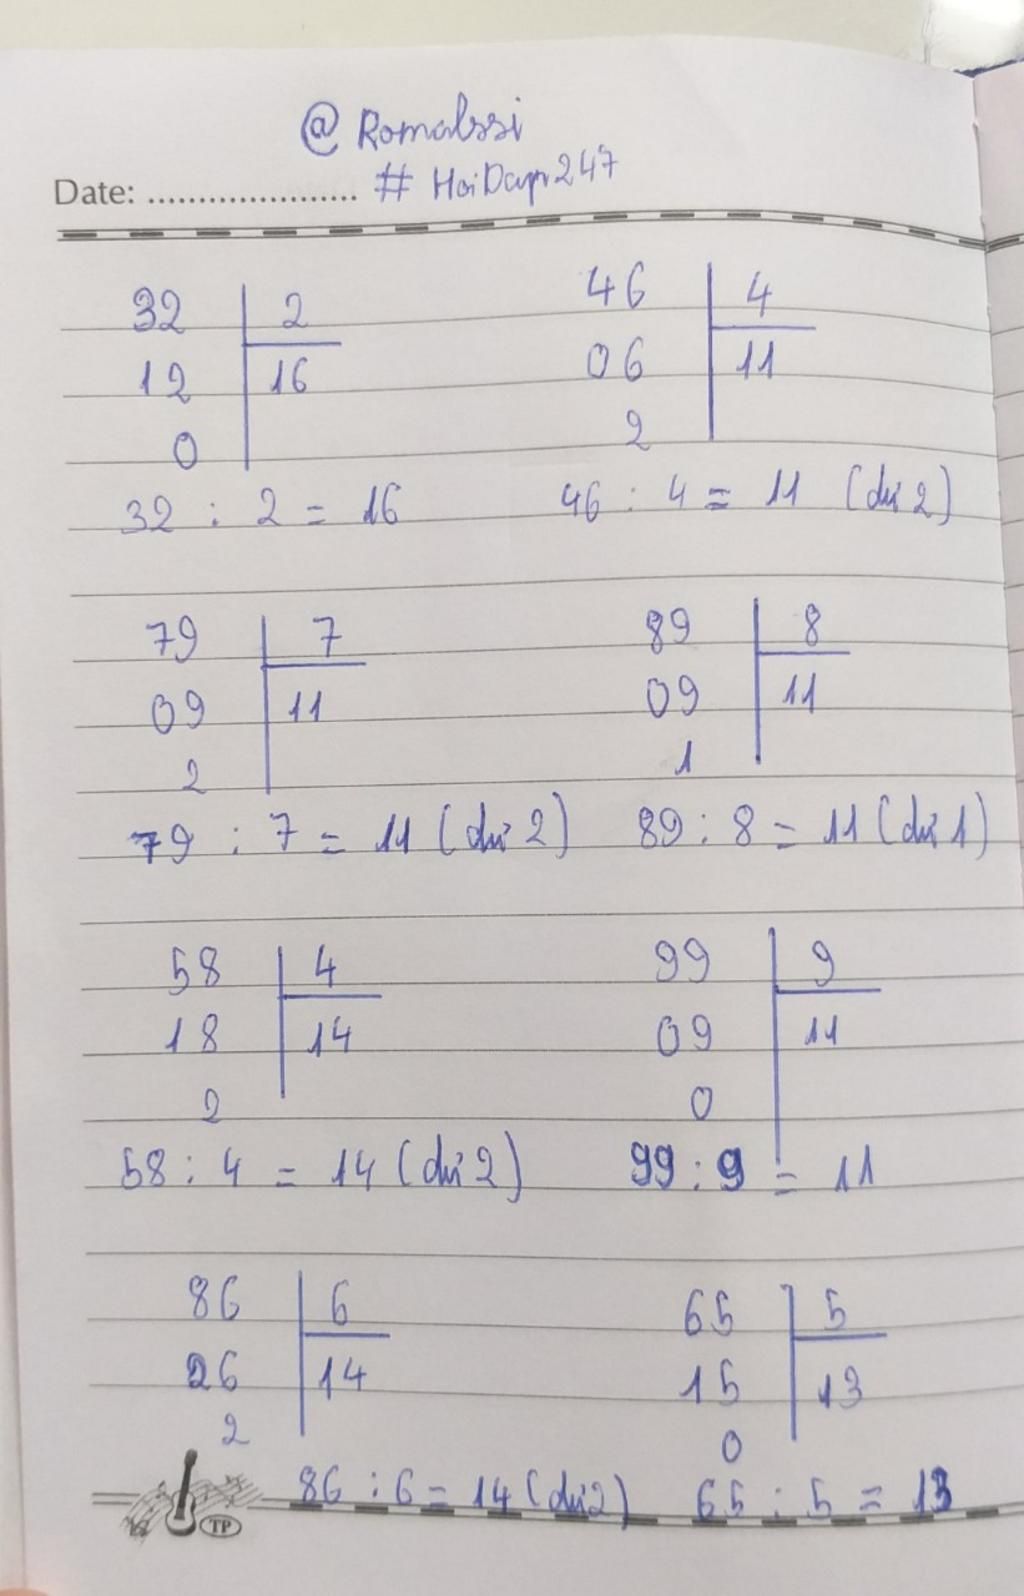 @ Romalssi
Date: .................... # HoiDap247
32 2 46 4
12 16 06 11
0 2
32 : 2 = 16 46 : 4 = 11 (dư 2)
79 7 89 8
09 11 09 11
2 1
79 : 7 = 11 (dư 2) 89 : 8 = 11 (dư 1)
58 4 99 9
18 14 09 11
2 0
58 : 4 = 14 (dư 2) 99 : 9 = 11
86 6 65 5
26 14 15 13
2 0
86 : 6 = 14 (dư 2) 65 : 5 = 13
TP